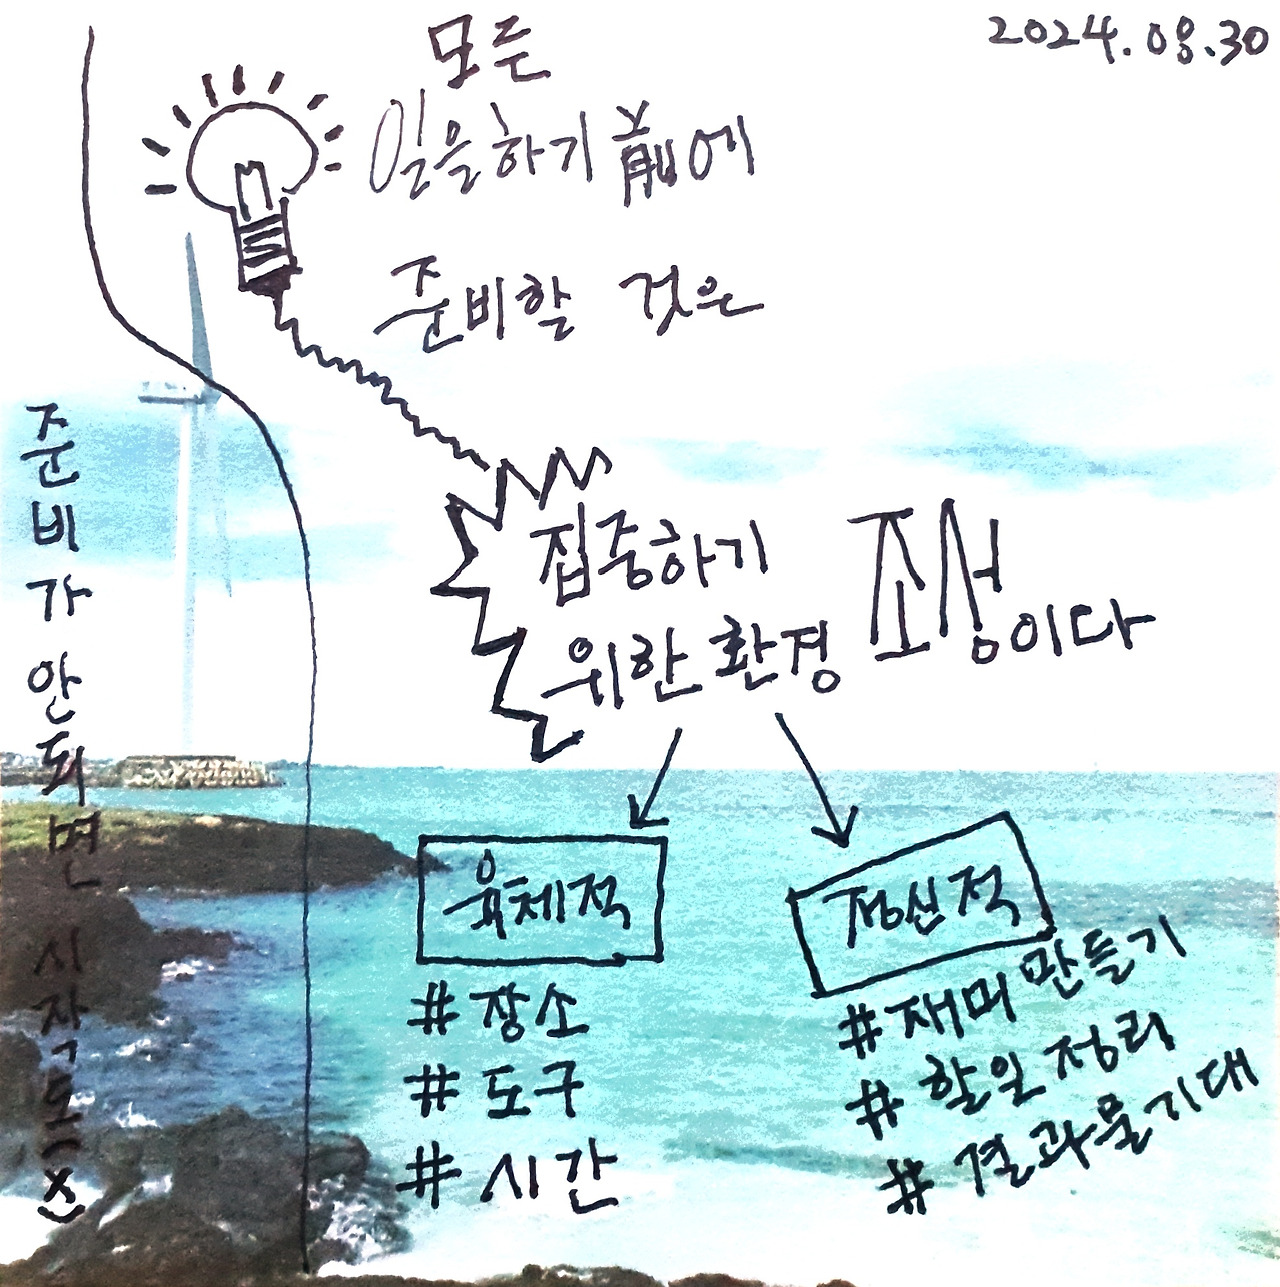 2024.08.30
모든
일을하기 前에
준비할 것은
집중하기
위한 환경 조성이다
육체적
#장소
#도구
#시간
정신적
#재미 만들기
#할일 정리
#결과물기대
준비가 안되면 시작도(X)